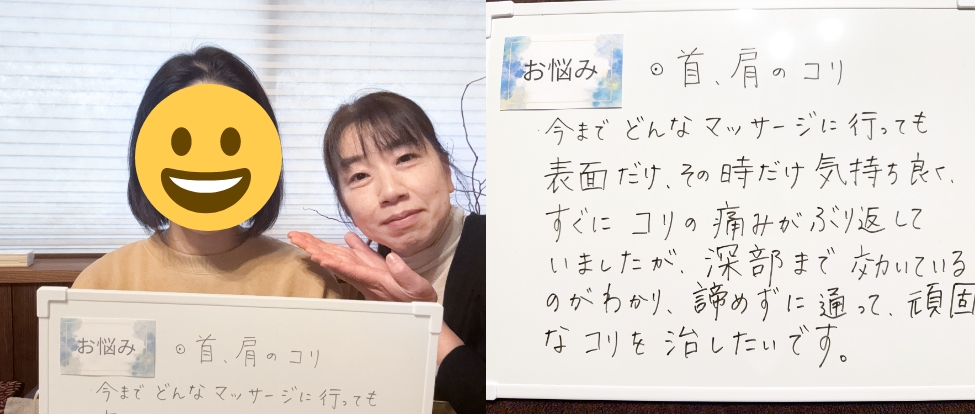 お悩み
◎首、肩のコリ
・今までどんなマッサージに行っても
お悩み
◎首、肩のコリ
・今までどんなマッサージに行っても
表面だけ、その時だけ気持ち良く、
すぐに コリの痛みがぶり返して
いましたが、深部まで効いている
のがわかり、諦めずに通って、頑固
なコリを治したいです。